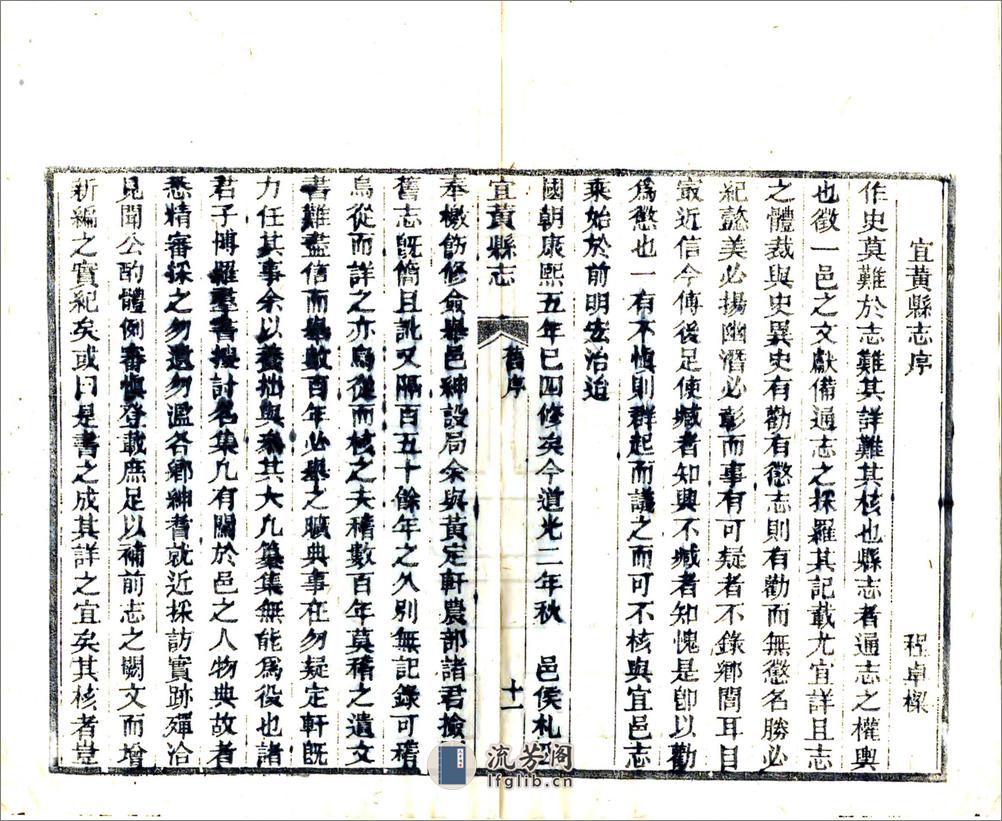 宜黃縣志序
程卓樑
作史莫難於志難其詳難其核也縣志者通志之權輿
也徵一邑之文獻備通志之採羅其記載尤宜詳且志
之體裁與史異史有勸有懲志則有勸而無懲名勝必
紀懿美必揚幽潛必彰而事有可疑者不錄鄉閭耳目
最近信今傳後足使臧者知與不臧者知愧是卽以勸
爲懲也一有不愼則群起而議之而可不核與宜邑志
乘始於前明宏治迨
國朝康熙五年已四修矣今道光二年秋 邑侯札
宜黃縣志
舊序
十一
奉檄飭修僉舉邑紳設局余與黃定軒農部諸君撿
舊志旣簡且訛又隔百五十餘年之久別無記錄可稽
烏從而詳之亦烏從而核之夫稽數百年莫稽之遺文
書難盡信而舉數百年必舉之曠典事在勿疑定軒旣
力任其事余以養拙與釆其大凡纂集無能爲役也諸
君子博羅羣書搜討名集凡有關於邑之人物典故者
悉精審採之勿遺勿濫各鄉紳耆就近採訪實跡殫洽
見聞公酌體例審愼登載庶足以補前志之闕文而增
新編之實紀矣或曰是書之成其詳之宜矣其核者豈
流芳阁
lfglib.cn